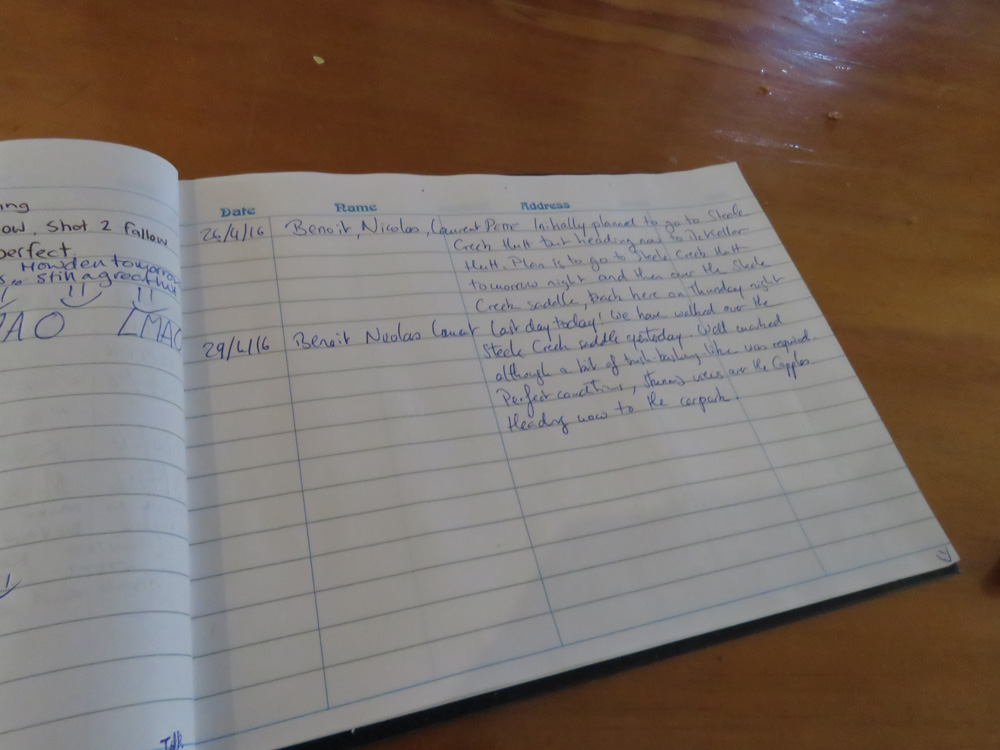 ow. Shot 2 follow
perfect
Howden tomorrow
still agree
LMAO
Date Name Address
26/4/16 Benoit, Nicolas, Laurent Initially planned to go to Steele
Creek Hutt but heading now to McKellar
Hutt. Plan is to go to Steele Creek Hutt
tomorrow night and then over the Steele
Creek saddle, back here on Thursday night
29/4/16 Benoit Nicolas Laurent Last day today! We have walked over the
Steele Creek saddle yesterday. Well marked
although a bit of bush bashing was required.
Perfect conditions, views over the Caples
Heading now to the carpark.